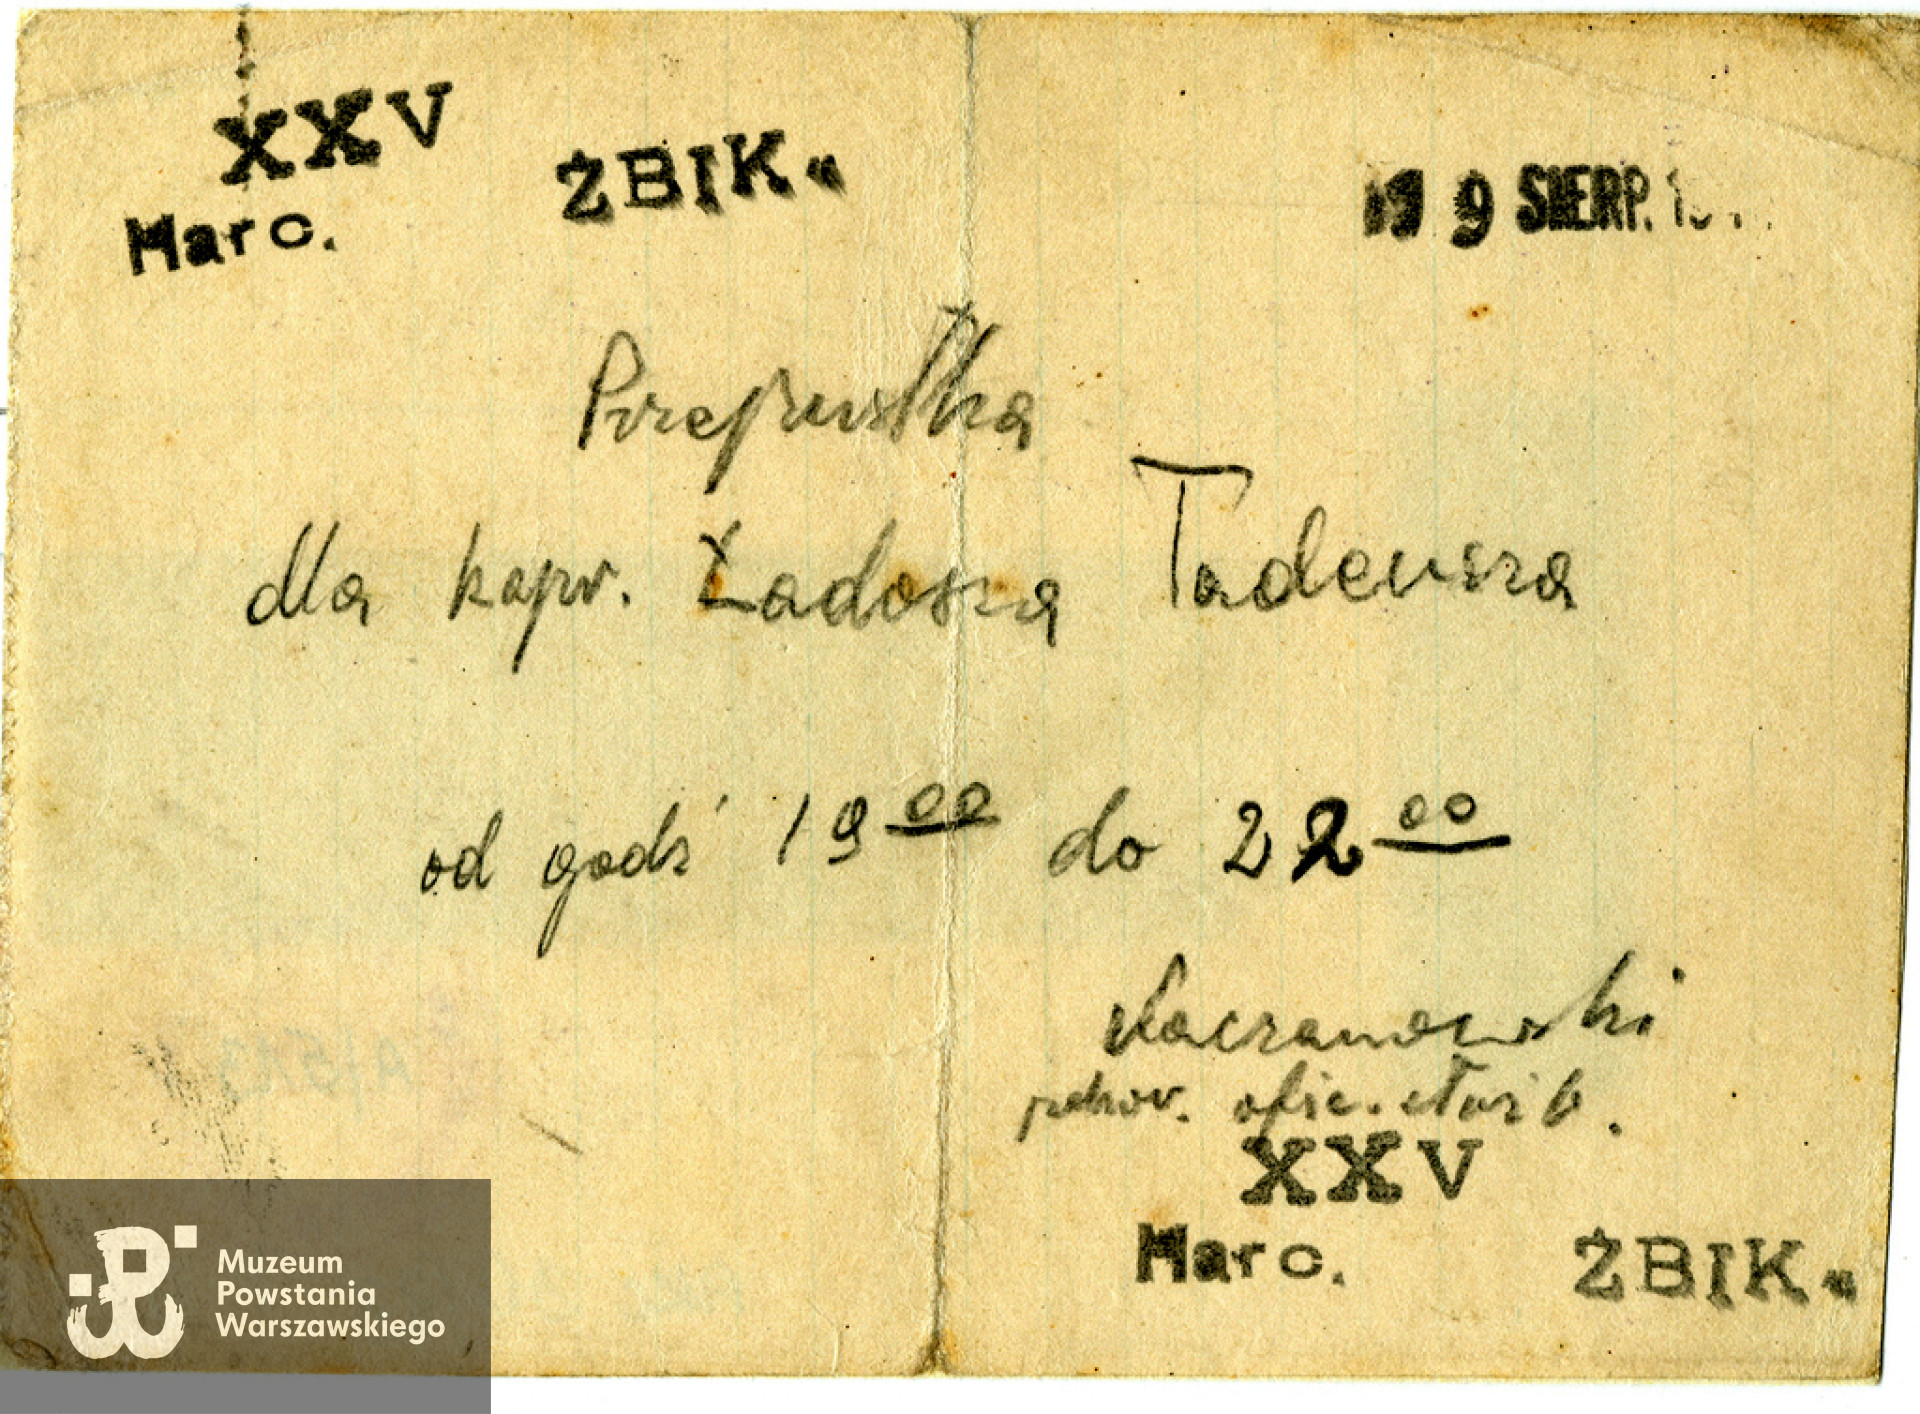 XXV
Marc. ŻBIK"
19 SIERP. 19
Przepustka
dla kapr. Żadosza Tadeusza
od godz 19 00 do 22 00
Kaczanowski
pchor. ofic. służb.
XXV
Marc. ŻBIK"
Muzeum
Powstania
Warszawskiego